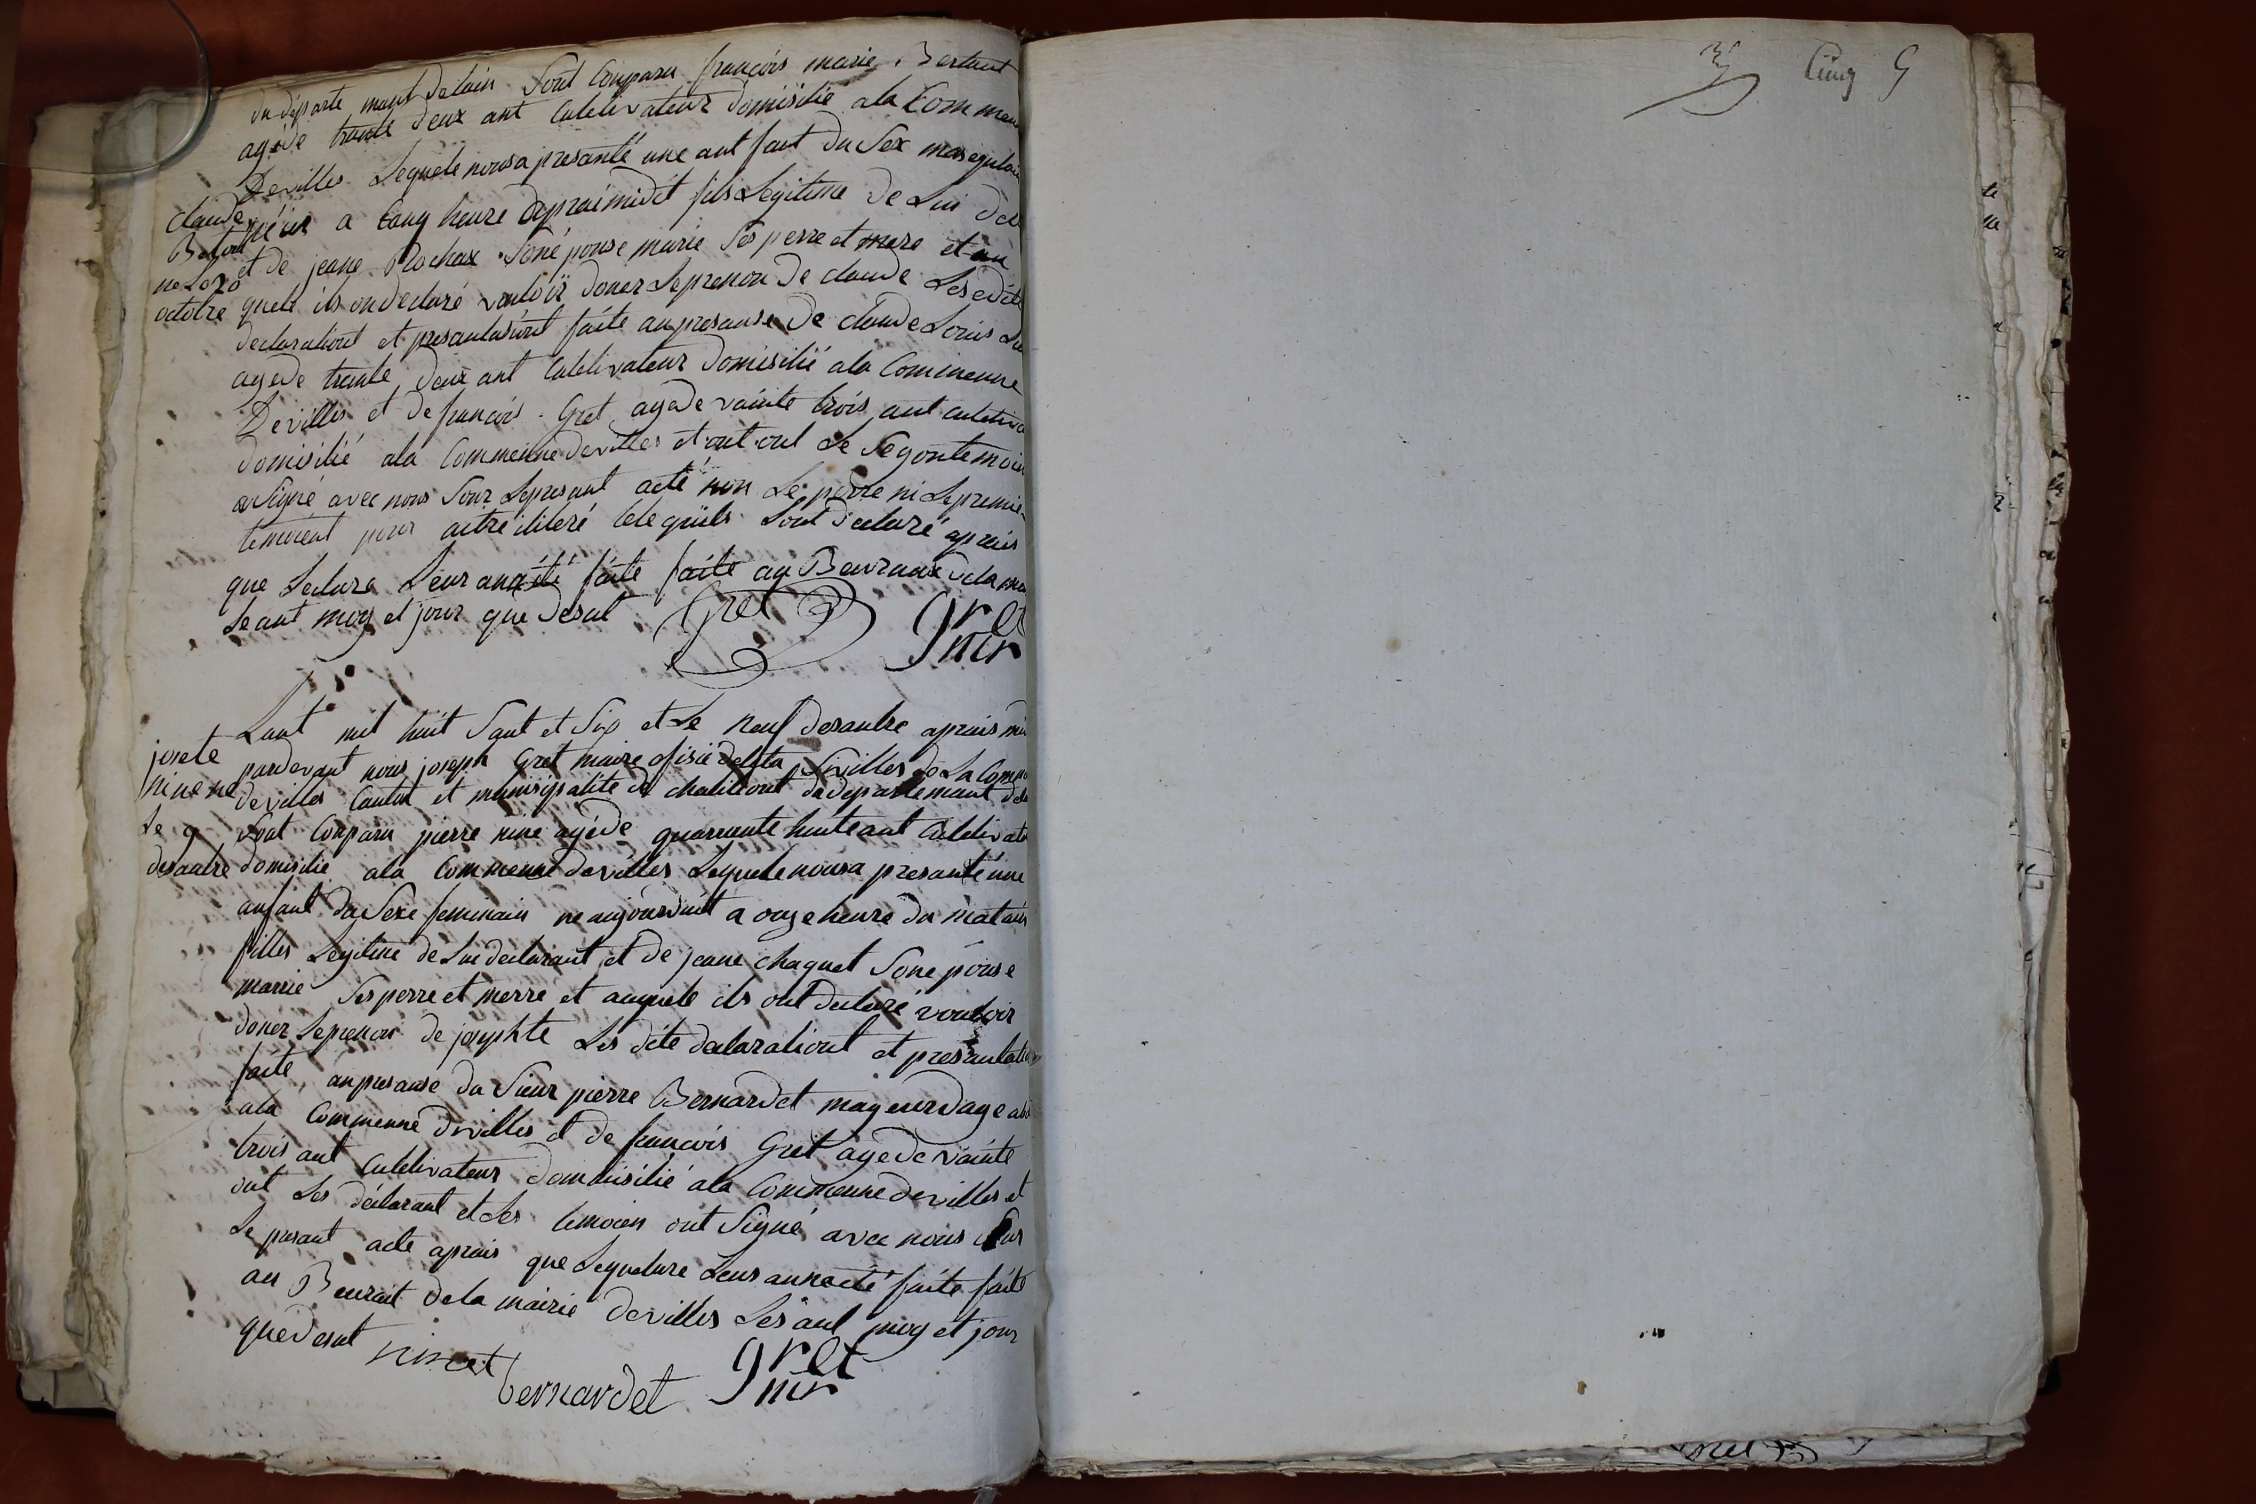 du départe mant delain Sont Conparu françois marie Bertaut
agede trante deux ant Culetivateur domisilié ala Commeu
Devilles Lequele nousa presanté une ant fant du Sex masequlain
né ier a Cinq heure depraimidit fils Legitime de Lui dela
et de jeane Rochax Soné ponse marie Ses perre et mere et au
quele ils on declaré vouloir doner Leprenon De claude Lesedite
declarationt et presantasiont faite aupresanse De claude Louis
agede trante deux ant Culetivateur Domisilié ala Commeune
Devilles et de francois Gret agede vainte trois ant culetiva
domisilié ala Commeune devilles et ont ont Le Segontemoin
a Signé avec nous Sour Lepresant acte non Le perre ni Lepremie
temoient pour aitre iliteré tele quils Sont declaré aprais
que Lectura Leur anaété faite faite au Beuraux dela mai
Leant moy et jour que desut
Claude
Bertaut
ne Le 20
octobre
Gret
gret
mer
Lant mil huit Sant et Six et Le Neuf desanbre aprais mi
pardevant nous joseph Gret maire ofisié deleta Siville de La Comm
devilles Canton et munisipalité de chatilliont du departemant del
Sont Conparu pierre nine agéde quarante huite ant Culetivate
domisilié ala Commeune devilles Lequele nousa presanté une
anfant du Sexe feminain ne aujourduit a onze heure du matain
filles Legitime de Lui declarant et de jeane chaquet Sone pouse
marie Ses perre et merre et auquele ils ont declaré vouloir
doner Leprenon de josephte Les dite declarationt et presantatio
faite anpresanse du Sieur pierre Bernardet mageurdage
ala Commeune devilles et de francois Gret agede vainte
trois ant Culetivateur domisilié ala Commeune devilles et
ont Les déclarant et Les temoien ont Signé avec nous Sur
Le presant acte aprais que Lequeture Leur anaété faite faite
au Beurait dela mairie devilles Lesant moy et jour
quedesut
josete
nine ne
Le 9
desanbre
ninet
bernardet
gret
mer
Cinq 5